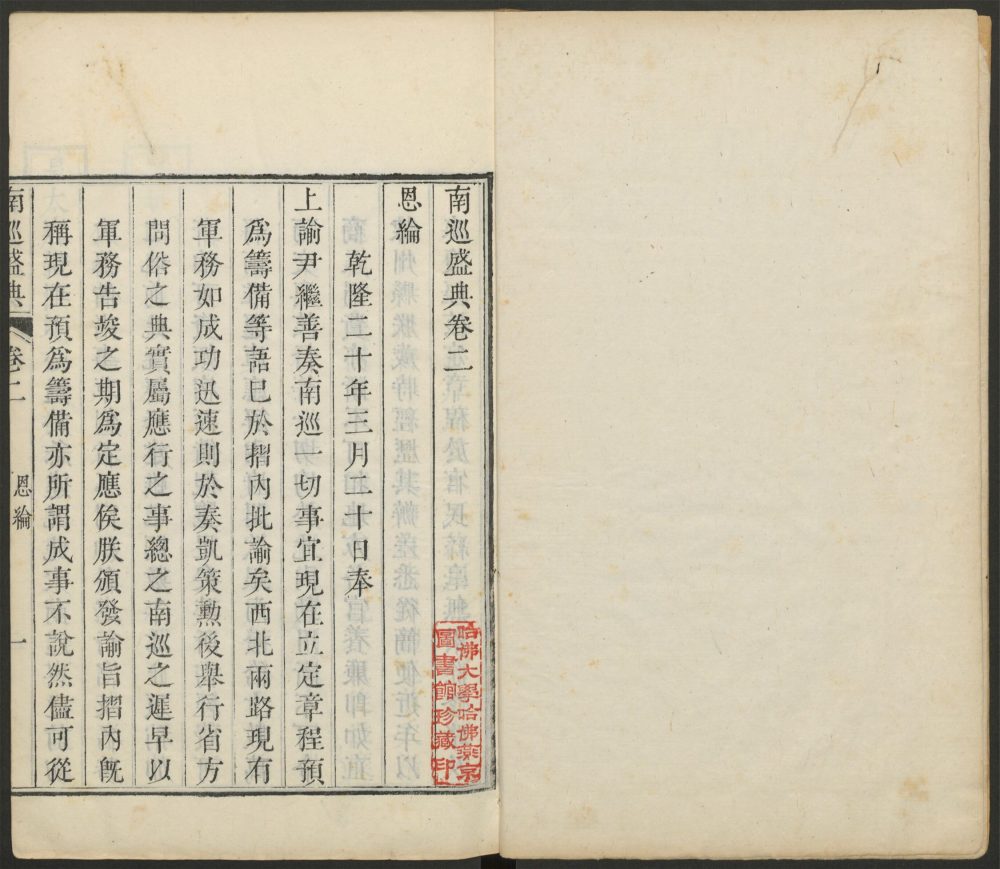 南巡盛典卷二
恩綸
乾隆二十年三月二十日奉
上諭尹繼善奏南巡一切事宜現在立定章程預
爲籌備等語已於摺內批諭矣西北兩路現有
軍務如成功迅速則於奏凱策勲後舉行省方
問俗之典實屬應行之事總之南巡之遲早以
軍務告竣之期爲定應俟朕頒發諭旨摺內旣
稱現在預爲籌備亦所謂成事不說然儘可從
南巡盛典 卷二 恩綸 一
哈佛大學哈佛燕京
圖書館珍藏印